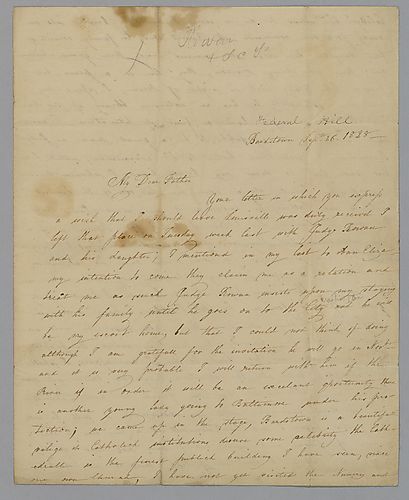 Rowan
Federal Hill
Bardstown Sept 26 1828—
My Dear Father
Your letter in which you express
a wish that I should leave Louisville was duly received I
left that place on Tuesday week last with Judge Rowan
and his daughter; I mentioned in my last to Ann Eliza
my intention to come they claim me as a relation and
treat me as such Judge Rowan insists upon my staying
with his family until he goes on to the City and he will
be my escort home, but that I could not think of doing
although I am gratefull for the invitation he will go in Novr
and it is very probable I will return with him if the
River is in order it will be an excelant oportunity there
is another young lady going to Baltimore under his pro-
tection; we came up in the stage, Bardstown is a beautiful
village its Catholick institutions deserve some celebrity the Cath-
edrall is the finest publick building I have seen, since
I have not yet visited the Nunnery and